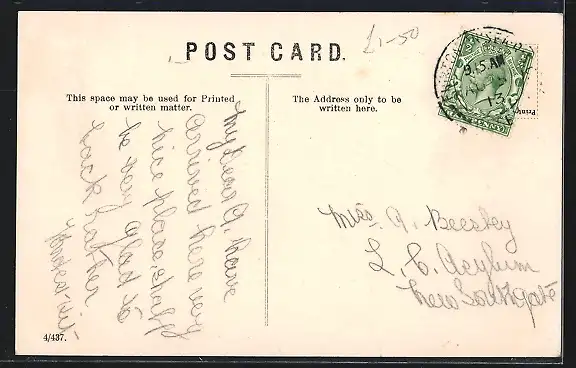 POST CARD.
£1-50
This space may be used for Printed
or written matter.
The Address only to be
written here.
9.5 AM
13
PENNY
My Dear A, have
arrived here very
nice place, shall
be very glad to
back
Miss. A. Beesley
L. C. Asylum
New Southgate
4/437.